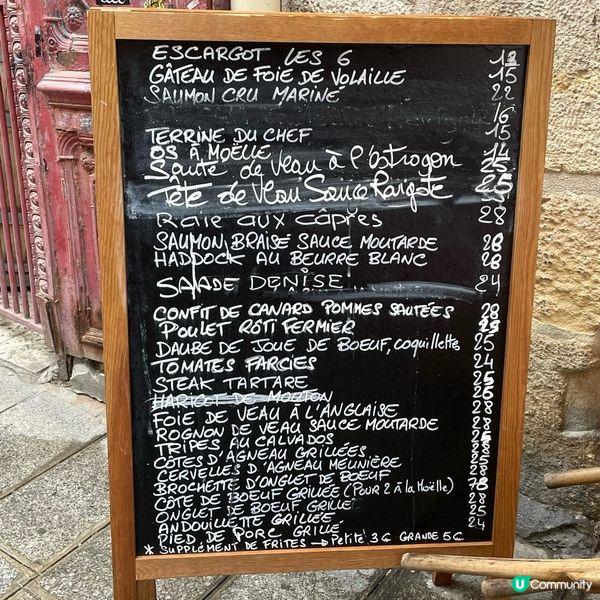 ESCARGOT LES 6 13
GÂTEAU DE FOIE DE VOLAILLE 15
SAUMON CRU MARINÉ 22
16
TERRINE DU CHEF 15
OS À MOËLLE 14
Sauté de Veau à l'Estragon 25
Tête de Veau Sauce Ravigote 25
Raie aux câpres 28
SAUMON BRAISÉ SAUCE MOUTARDE 28
HADDOCK AU BEURRE BLANC 28
SALADE DENISE... 24
CONFIT DE CANARD POMMES SAUTÉES 28
POULET RÔTI FERMIER
DAUBE DE JOUE DE BOEUF, coquillettes 25
TOMATES FARCIES 24
STEAK TARTARE 25
HARICOT DE MOUTON 25
FOIE DE VEAU À L'ANGLAISE 28
ROGNON DE VEAU SAUCE MOUTARDE 28
TRIPES AU CALVADOS
CÔTES D'AGNEAU GRILLÉES
CERVELLES D'AGNEAU MEUNIÈRE
BROCHETTE D'ONGLET DE BOEUF 28
CÔTE DE BOEUF GRILLÉE (Pour 2 à la Moëlle) 78
ONGLET DE BOEUF GRILLÉ 28
ANDOUILLETTE GRILLÉE 25
PIED DE PORC GRILLÉ 24
* SUPPLÉMENT DE FRITES → Petite 3€ GRANDE 5€
U Community